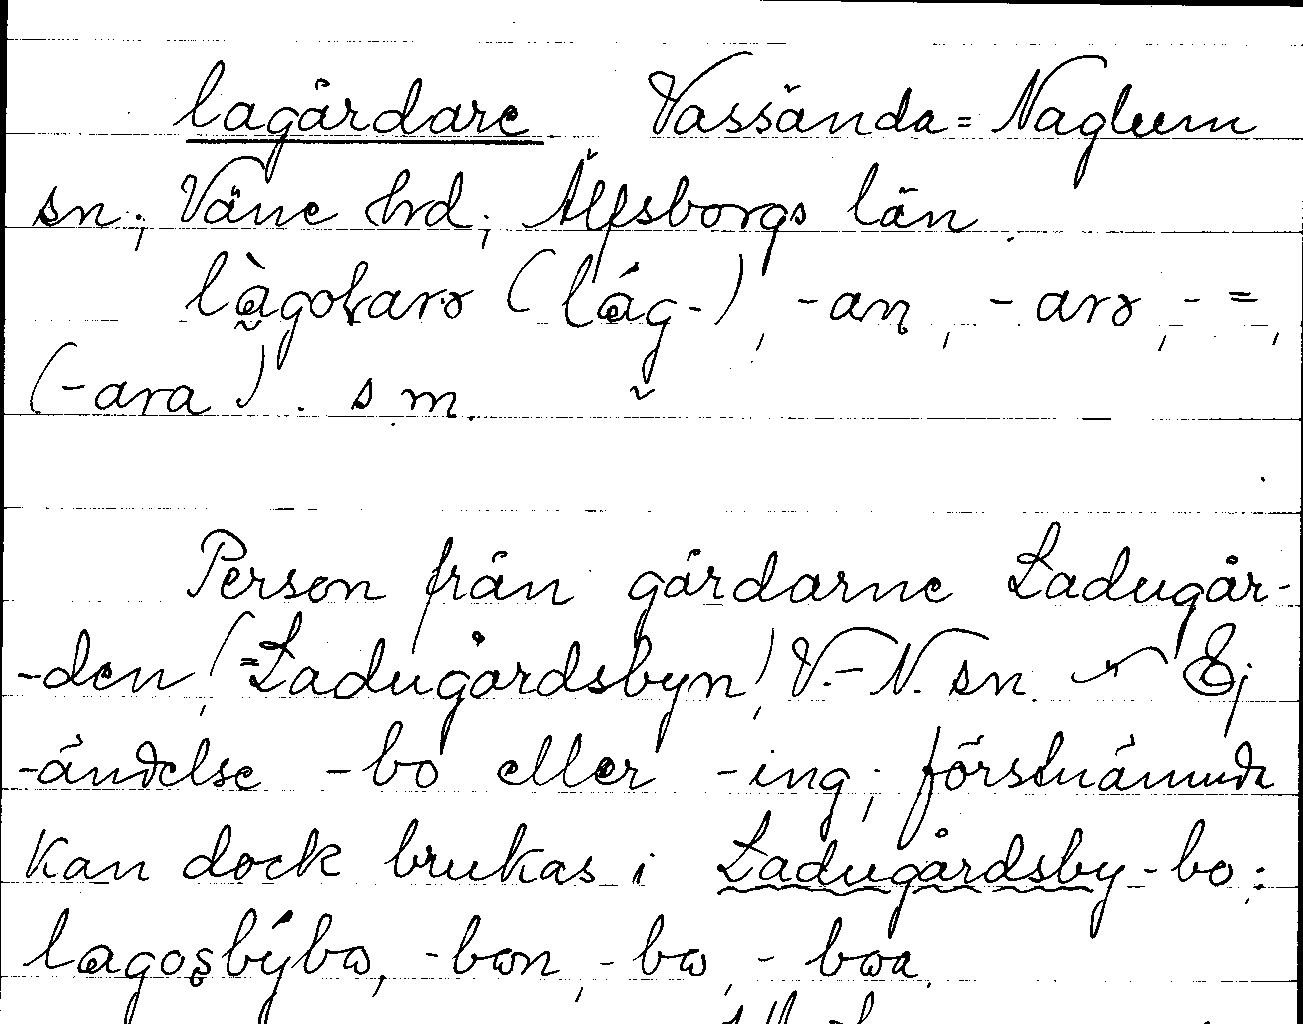 lagårdare Vassända=Naglum
sn; Väne hrd; Älfsborgs län.
làgoɖarə (lág-), -an, -arə, - =,
(-ara). s m.
Person från gårdarne Ladugår-
-den, (=Ladugårdsbyn) V.-N. sn. Ej
-ändelse -bo eller -ing; förstnämnda
kan dock brukas i Ladugårdsby-bo:
lagoʂbýbɷ, -bɷn, -bɷ, -bɷa.